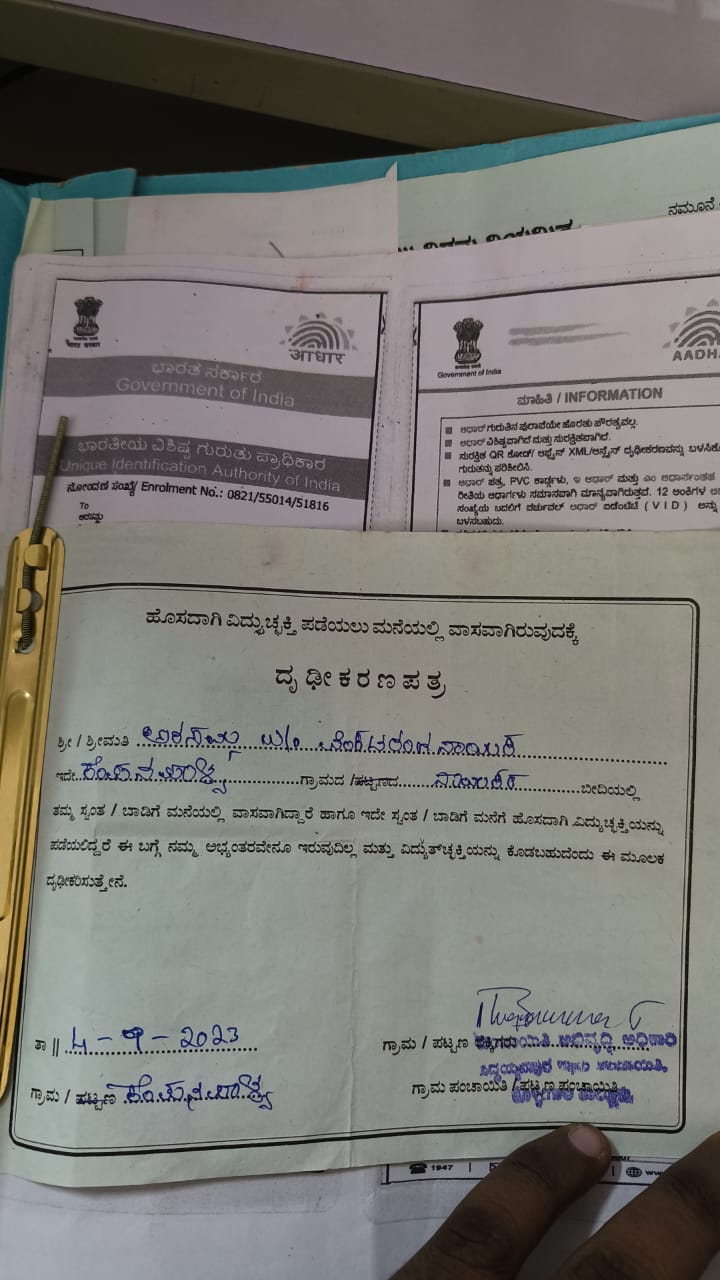 ನಮೂನೆ
भारत सरकार
आधार
ಭಾರತ ಸರ್ಕಾರ
Government of India
ಭಾರತೀಯ ವಿಶಿಷ್ಟ ಗುರುತು ಪ್ರಾಧಿಕಾರ
Unique Identification Authority of India
ನೋಂದಣಿ ಸಂಖ್ಯೆ/ Enrolment No.: 0821/55014/51816
To
Government of India
AADHA
ಮಾಹಿತಿ / INFORMATION
ಆಧಾರ್ ಗುರುತಿನ ಪುರಾವೆಯೇ ಹೊರತು ಪೌರತ್ವವಲ್ಲ.
ಆಧಾರ್ ವಿಶಿಷ್ಟವಾಗಿದೆ ಮತ್ತು ಸುರಕ್ಷಿತವಾಗಿದೆ.
ಸುರಕ್ಷಿತ QR ಕೋಡ್/ ಆಫ್ಲೈನ್ XML/ಆನ್ಲೈನ್ ದೃಢೀಕರಣವನ್ನು ಬಳಸಿಕೊ
ಗುರುತನ್ನು ಪರಿಶೀಲಿಸಿ.
ಆಧಾರ್ ಪತ್ರ, PVC ಕಾರ್ಡ್ಗಳು, ಇ ಆಧಾರ್ ಮತ್ತು ಎಂ ಆಧಾರ್ನಂತಹ
ರೀತಿಯ ಆಧಾರ್ಗಳು ಸಮಾನವಾಗಿ ಮಾನ್ಯವಾಗಿರುತ್ತವೆ. 12 ಅಂಕಿಗಳ
ಸಂಖ್ಯೆಯ ಬದಲಿಗೆ ವರ್ಚುವಲ್ ಆಧಾರ್ ಐಡೆಂಟಿಟಿ (VID) ಅನ್ನು
ಬಳಸಬಹುದು.
ಹೊಸದಾಗಿ ವಿದ್ಯುಚ್ಛಕ್ತಿ ಪಡೆಯಲು ಮನೆಯಲ್ಲಿ ವಾಸವಾಗಿರುವುದಕ್ಕೆ
ದೃಢೀಕರಣಪತ್ರ
ಶ್ರೀ / ಶ್ರೀಮತಿ ನಾಯಕ
ಇದೇ ಗ್ರಾಮದ / ಪಟ್ಟಣದ ನಾಯಕರ ಬೀದಿಯಲ್ಲಿ
ತಮ್ಮ ಸ್ವಂತ / ಬಾಡಿಗೆ ಮನೆಯಲ್ಲಿ ವಾಸವಾಗಿದ್ದಾರೆ ಹಾಗೂ ಇದೇ ಸ್ವಂತ / ಬಾಡಿಗೆ ಮನೆಗೆ ಹೊಸದಾಗಿ ವಿದ್ಯುಚ್ಛಕ್ತಿಯನ್ನು
ಪಡೆಯಲಿದ್ದರೆ ಈ ಬಗ್ಗೆ ನಮ್ಮ ಅಭ್ಯಂತರವೇನೂ ಇರುವುದಿಲ್ಲ ಮತ್ತು ವಿದ್ಯುತ್‌ಚ್ಛಕ್ತಿಯನ್ನು ಕೊಡಬಹುದೆಂದು ಈ ಮೂಲಕ
ದೃಢೀಕರಿಸುತ್ತೇನೆ.
ತಾ || 4-9-2023
ಗ್ರಾಮ / ಪಟ್ಟಣ
ಗ್ರಾಮ / ಪಟ್ಟಣ
ಗ್ರಾಮ ಪಂಚಾಯಿತಿ / ಪಟ್ಟಣ ಪಂಚಾಯಿತಿ
1947